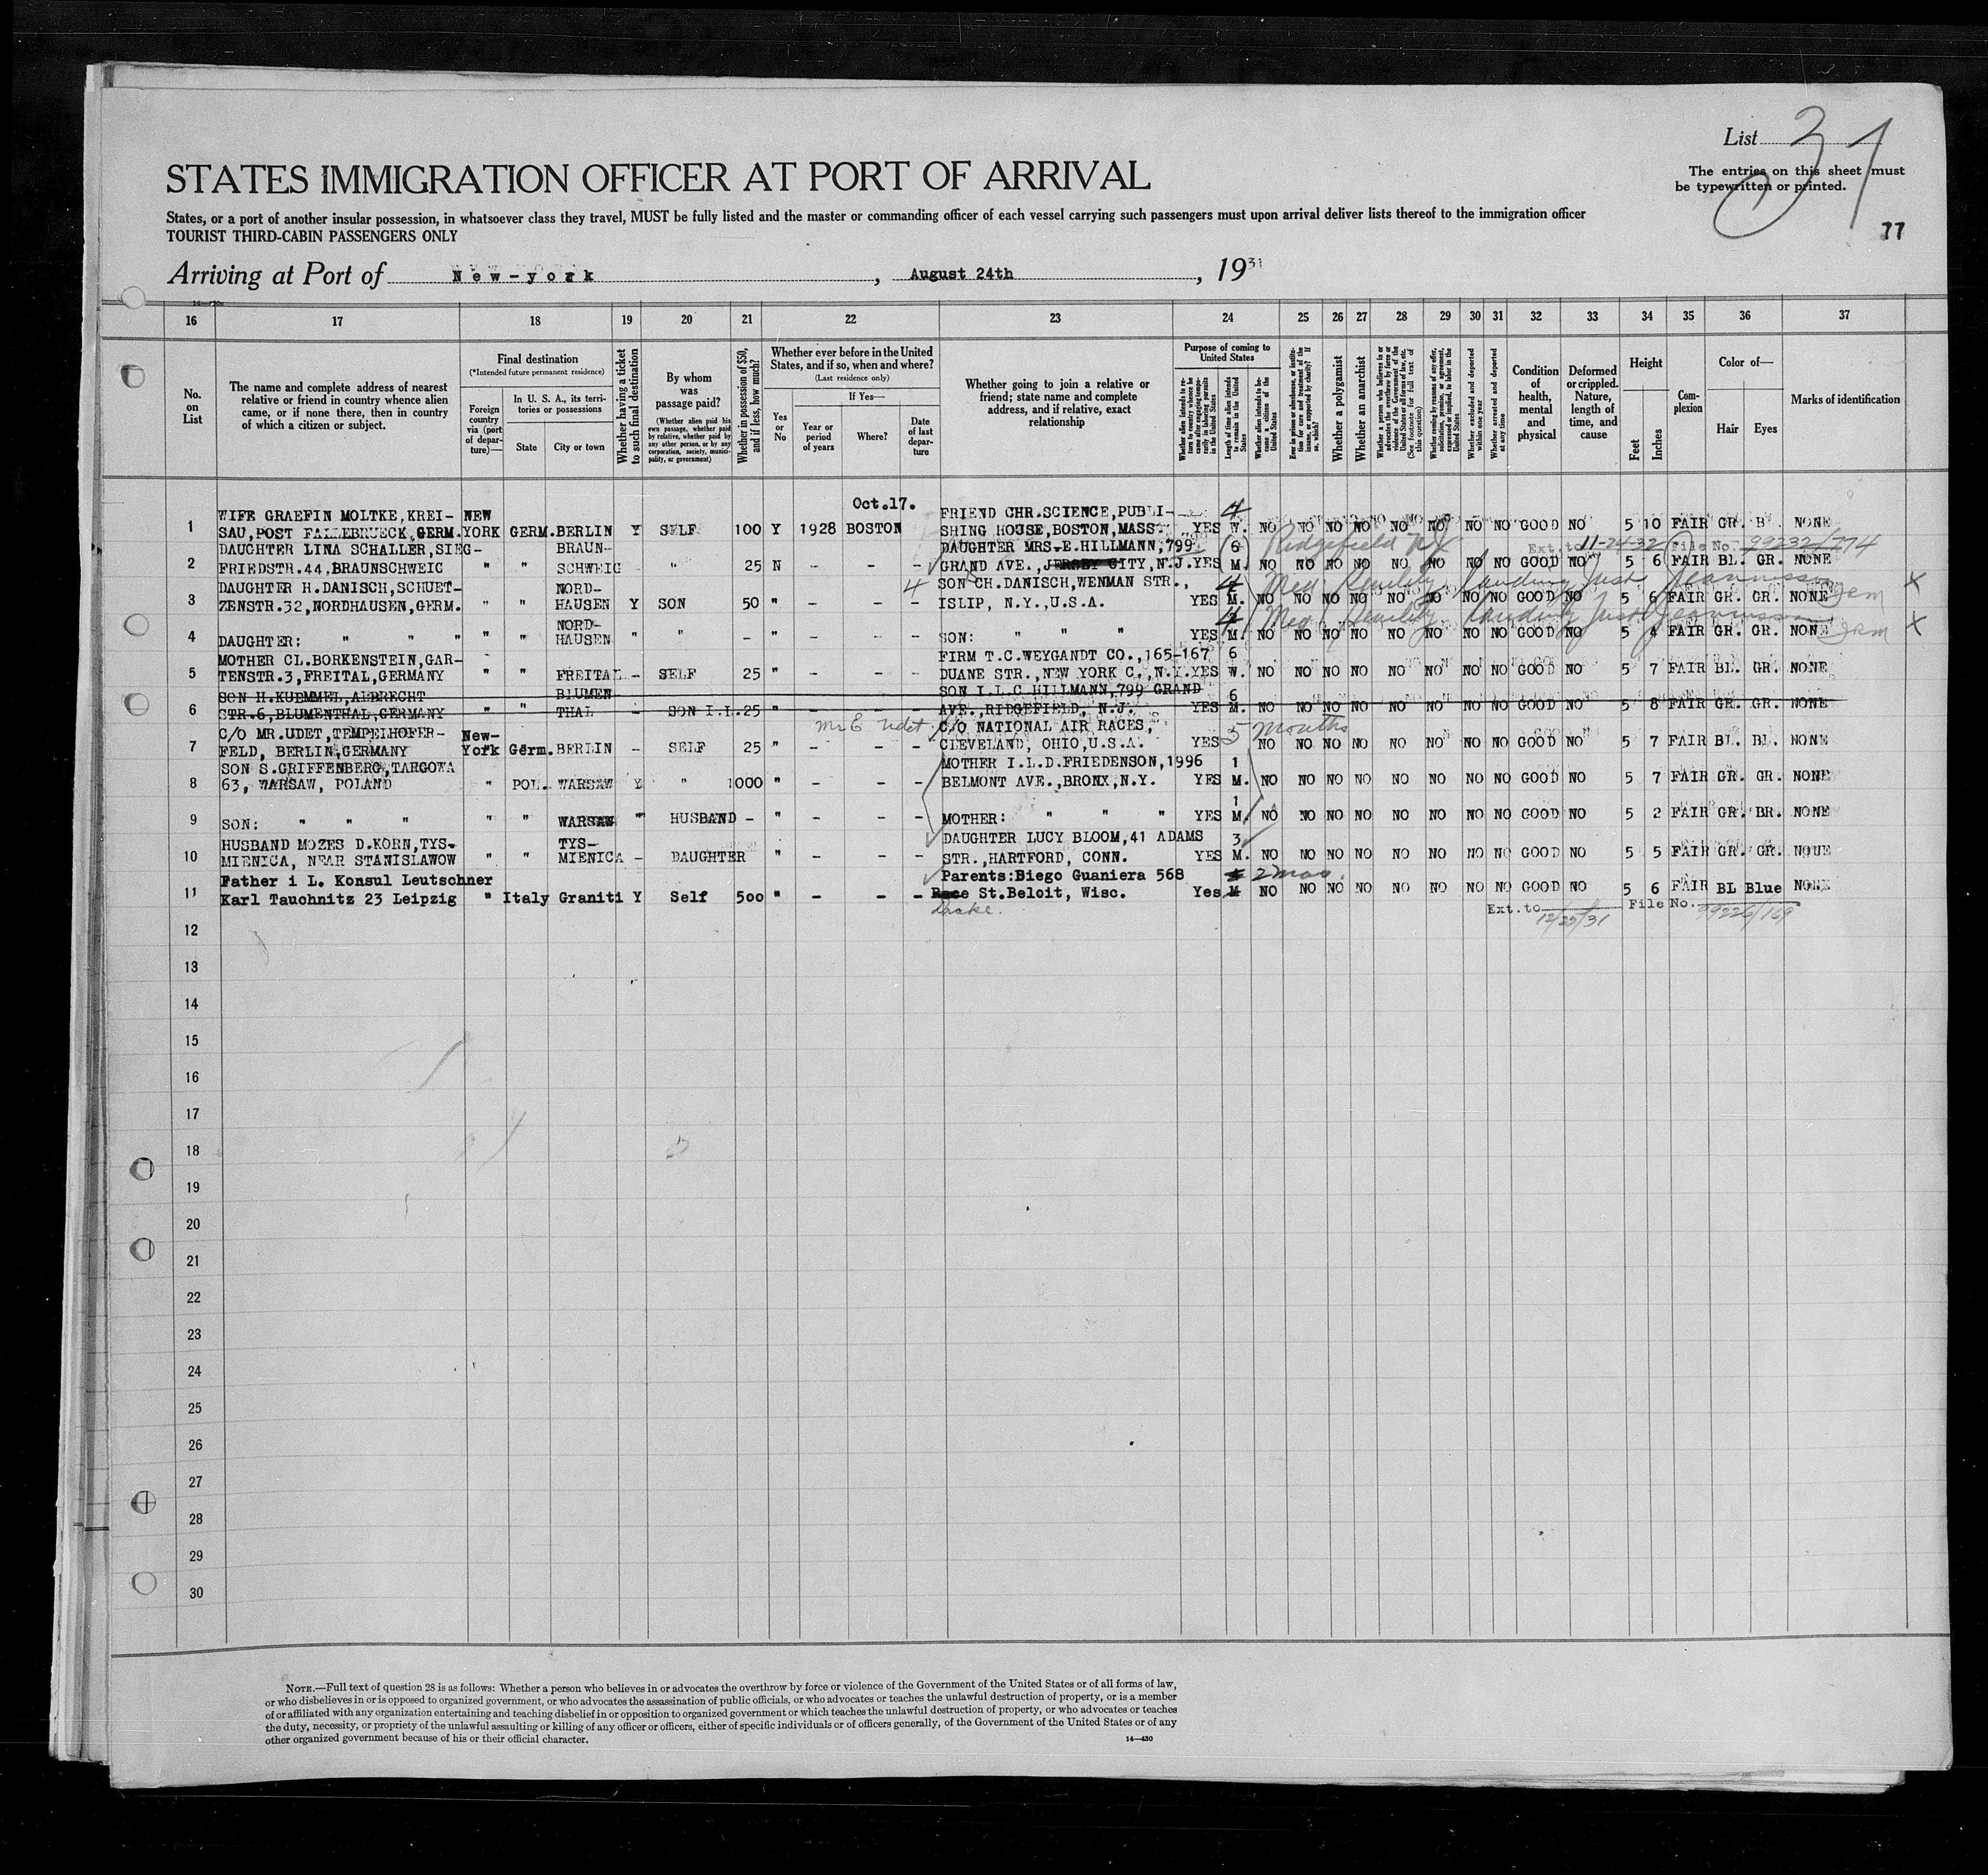 List 37
The entries on this sheet must
be typewritten or printed.
STATES IMMIGRATION OFFICER AT PORT OF ARRIVAL
States, or a port of another insular possession, in whatsoever class they travel, MUST be fully listed and the master or commanding officer of each vessel carrying such passengers must upon arrival deliver lists thereof to the immigration officer
TOURIST THIRD-CABIN PASSENGERS ONLY
77
Arriving at Port of New-york, August 24th, 1931
16 17 18 19 20 21 22 23 24 25 26 27 28 29 30 31 32 33 34 35 36 37
No. on List
The name and complete address of nearest relative or friend in country whence alien came, or if none there, then in country of which a citizen or subject.
Final destination
(*Intended future permanent residence)
Foreign country via (port of departure)—
In U. S. A., its territories or possessions
State
City or town
Whether having a ticket to such final destination
By whom was passage paid?
(Whether alien paid his own passage, whether paid by relative, whether paid by any other person, or by any corporation, society, municipality, or government)
Whether in possession of $50, and if less, how much?
Whether ever before in the United States, and if so, when and where?
(Last residence only)
Yes or No
If Yes—
Year or period of years
Where?
Date of last departure
Whether going to join a relative or friend; state name and complete address, and if relative, exact relationship
Purpose of coming to United States
Whether alien intends to return to country whence he came after engaging temporarily in laboring pursuits in the United States
Length of time alien intends to remain in the United States
Whether alien intends to become a citizen of the United States
Ever in prison or almshouse, or institution for care and treatment of the insane, or supported by charity? If so, which?
Whether a polygamist
Whether an anarchist
Whether a person who believes in or advocates the overthrow by force or violence of the Government of the United States or all forms of law, etc. (See footnote for full text of this question)
Whether coming by reasons of any offer, solicitation, promise, or agreement, expressed or implied, to labor in the United States
Whether excluded and deported within one year
Whether arrested and deported at any time
Condition of health, mental and physical
Deformed or crippled. Nature, length of time, and cause
Height
Feet
Inches
Complexion
Color of—
Hair
Eyes
Marks of identification
Oct.17.
WIFE GRAEFIN MOLTKE,KREI- NEW FRIEND CHR.SCIENCE,PUBLI- 4
1 SAU,POST FALLEBRUECK,GERM. YORK GERM. BERLIN Y SELF 100 Y 1928 BOSTON SHING HOUSE,BOSTON,MASS. YES W. NO NO NO NO NO NO NO NO GOOD NO 5 10 FAIR GR. B. NONE
DAUGHTER LINA SCHALLER,SIEG- BRAUN- DAUGHTER MRS.E.HILLMANN,799 6 Ridgefield NJ Ext. to 11-24-32 File No. 99232/774
2 FRIEDSTR.44,BRAUNSCHWEIG " " SCHWEIG - " 25 N - - - GRAND AVE.,JERSEY CITY,N.J. YES M. NO NO NO NO NO NO NO NO GOOD NO 5 6 FAIR BL. GR. NONE
DAUGHTER H.DANISCH,SCHUET- NORD- 4 SON CH.DANISCH,WENMAN STR., 4 Med. Senility landing
3 ZENSTR.32,NORDHAUSEN,GERM. " " HAUSEN Y SON 50 " - - - ISLIP, N.Y.,U.S.A. YES M. NO NO NO NO NO NO NO NO GOOD NO 5 6 FAIR GR. GR. NONE X
NORD- 4 Med. Senility landing
4 DAUGHTER: " " " " " HAUSEN " " - " - - - SON: " " " YES M. NO NO NO NO NO NO NO NO GOOD NO 5 4 FAIR GR. GR. NONE X
MOTHER CL.BORKENSTEIN,GAR- FIRM T.C.WEYGANDT CO.,165-167 6
5 TENSTR.3,FREITAL,GERMANY " " FREITAL - SELF 25 " - - - DUANE STR.,NEW YORK C.,N.Y. YES W. NO NO NO NO NO NO NO NO GOOD NO 5 7 FAIR BL. GR. NONE
SON H.KUEMMEL,ALBRECHT BLUMEN SON I.L.C.HILLMANN,799 GRAND 6
6 STR.6,BLUMENTHAL,GERMANY " " THAL - SON I.L. 25 " - - - AVE.,RIDGEFIELD, N.J. YES M. NO NO NO NO NO NO NO NO GOOD NO 5 8 FAIR GR. GR. NONE
C/O MR.UDET,TEMPELHOFER- New- Mr E Udet C/O NATIONAL AIR RACES, 5 Months
7 FELD, BERLIN,GERMANY York Germ. BERLIN - SELF 25 " - - - CLEVELAND, OHIO,U.S.A. YES NO NO NO NO NO NO NO NO GOOD NO 5 7 FAIR BL. BL. NONE
SON S.GRIFFENBERG,TARGOWA MOTHER I.L.D.FRIEDENSON,1996 1
8 63, WARSAW, POLAND " POL. WARSAW Y " 1000 " - - - BELMONT AVE.,BRONX,N.Y. YES M. NO NO NO NO NO NO NO NO GOOD NO 5 7 FAIR GR. GR. NONE
1
9 SON: " " " " " WARSAW " HUSBAND - " - - - MOTHER: " " " YES M. NO NO NO NO NO NO NO NO GOOD NO 5 2 FAIR GR. BR. NONE
HUSBAND MOZES D.KORN,TYS- TYS- DAUGHTER LUCY BLOOM,41 ADAMS 3
10 MIENICA, NEAR STANISLAWOW " " MIENICA - DAUGHTER " - - - STR.,HARTFORD, CONN. YES M. NO NO NO NO NO NO NO NO GOOD NO 5 5 FAIR GR. GR. NONE
Father i L. Konsul Leutschner Parents:Biego Guaniera 568 2 mos.
11 Karl Tauchnitz 23 Leipzig " Italy Graniti Y Self 500 " - - - Race St.Beloit, Wisc. Yes M NO NO NO NO NO NO NO NO GOOD NO 5 6 FAIR BL Blue NONE
Drake. Ext. to 12/23/31 File No. 99226/169
12
13
14
15
16
17
18
19
20
21
22
23
24
25
26
27
28
29
30
NOTE.—Full text of question 28 is as follows: Whether a person who believes in or advocates the overthrow by force or violence of the Government of the United States or of all forms of law,
or who disbelieves in or is opposed to organized government, or who advocates the assassination of public officials, or who advocates or teaches the unlawful destruction of property, or is a member
of or affiliated with any organization entertaining and teaching disbelief in or opposition to organized government or which teaches the unlawful destruction of property, or who advocates or teaches
the duty, necessity, or propriety of the unlawful assaulting or killing of any officer or officers, either of specific individuals or of officers generally, of the Government of the United States or of any
other organized government because of his or their official character.
14—430